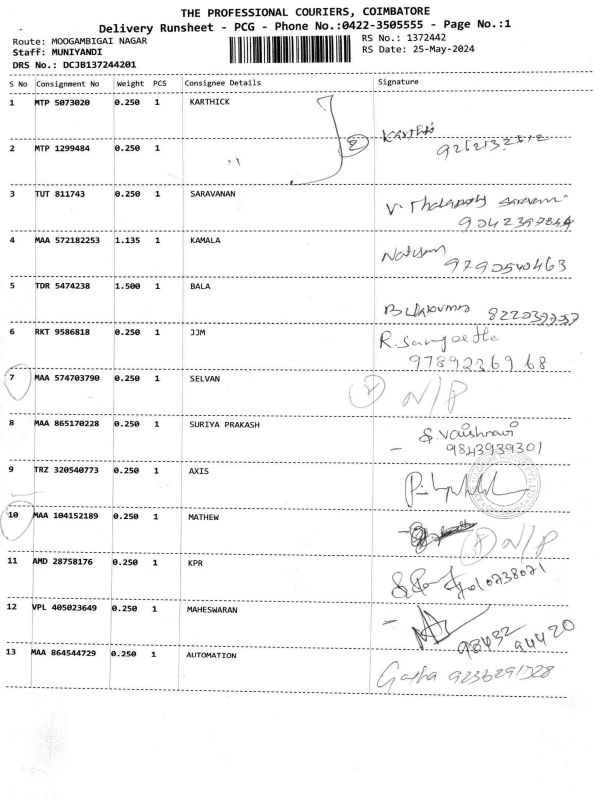 THE PROFESSIONAL COURIERS, COIMBATORE
Delivery Runsheet - PCG - Phone No.:0422-3505555 - Page No.:1
Route: MOOGAMBIGAI NAGAR
RS No.: 1372442
Staff: MUNIYANDI
RS Date: 25-May-2024
DRS No.: DCJB137244201
S No Consignment No Weight PCS Consignee Details Signature
1 MTP 5073020 0.250 1 KARTHICK
2 MTP 1299484 0.250 1 "
3 TUT 811743 0.250 1 SARAVANAN
4 MAA 572182253 1.135 1 KAMALA
9790540463
5 TDR 5474238 1.500 1 BALA
6 RKT 9586818 0.250 1 JJM
R. Sangeetha
9789236968
7 MAA 574703790 0.250 1 SELVAN
N/P
8 MAA 865170228 0.250 1 SURIYA PRAKASH
S. Vaishnavi
9843939301
9 TRZ 320540773 0.250 1 AXIS
10 MAA 104152189 0.250 1 MATHEW
N/P
11 AMD 28758176 0.250 1 KPR
12 VPL 405023649 0.250 1 MAHESWARAN
98432
94420
13 MAA 864544729 0.250 1 AUTOMATION